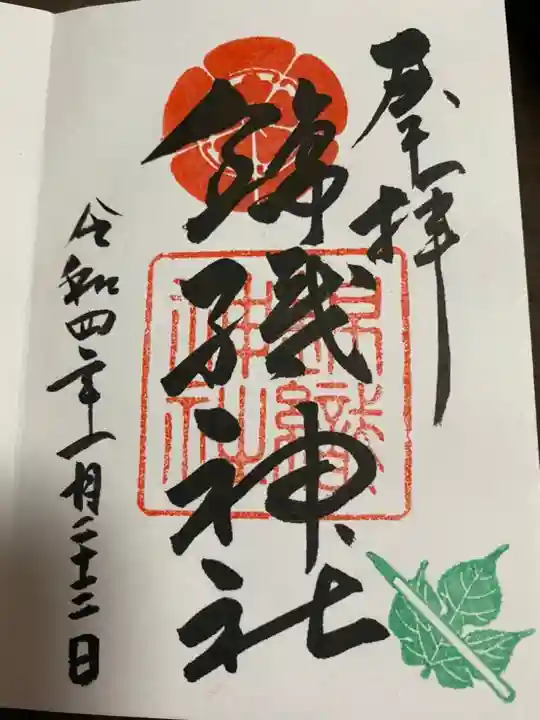 奉拝
錦織神社
錦織神社
令和四年一月二十二日